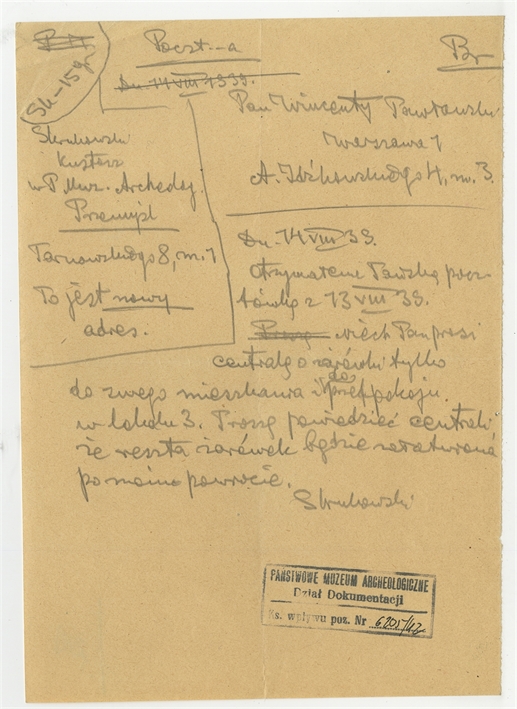 Poczt.-a
Br
Sk-15g.
Dn. 14 VIII 1939.
Pan Wincenty Pawłowski
Warszawa 1
A. Idźkowskiego 4, m. 3.
Skrukowski
Kustosz
w P. Muz. Archeolog.
Przemyśl
Tarnowskiego 8, m. 1
To jest nowy
adres.
Dn. 14 VIII 39.
Otrzymałem Pańską pocz-
tówkę z 13 VIII 39.
Proszę niech Pan prosi
centralę o żarówki tylko
do swego mieszkania i do przedpokoju
w lokalu 3. Proszę powiedzieć centrali
że reszta żarówek będzie załatwiona
po moim powrocie.
PAŃSTWOWE MUZEUM ARCHEOLOGICZNE
Dział Dokumentacji
Ks. wpływu poz. Nr 6205/42